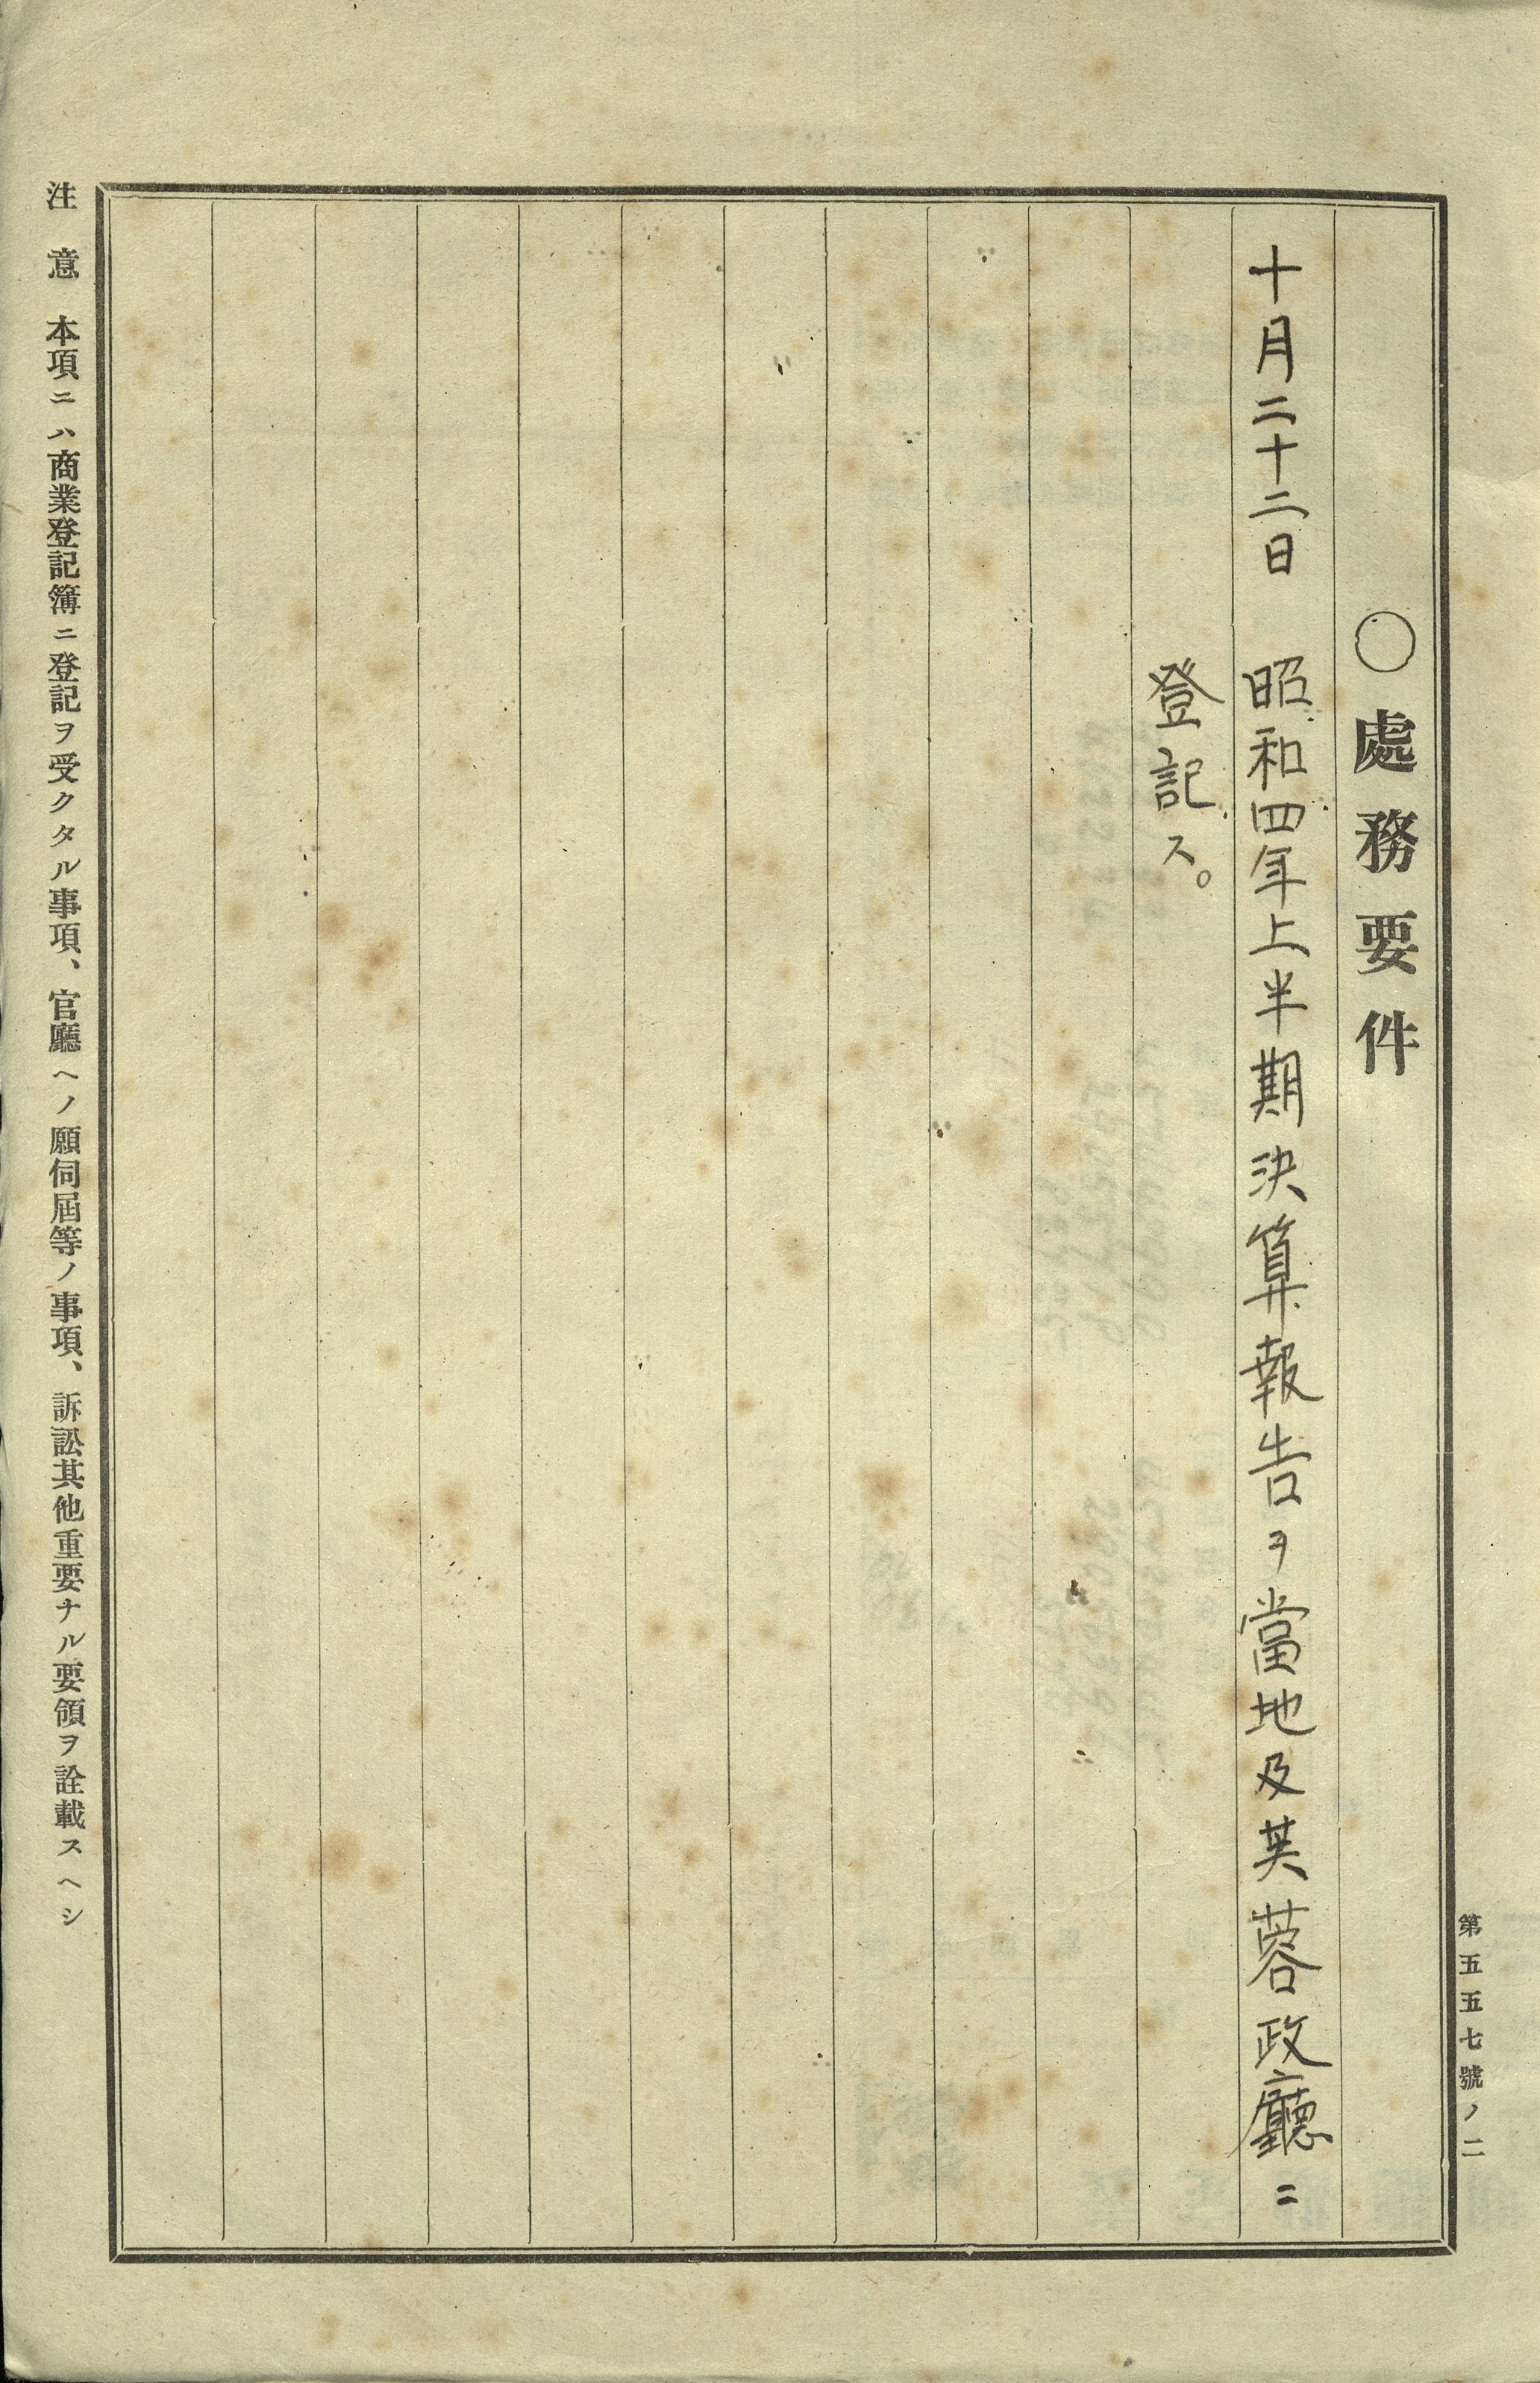 第五五七號ノ二
○處務要件
十月二十二日 昭和四年上半期決算報告ヲ當地及芙蓉政廳ニ
登記ス。
注意 本項ニハ商業登記簿ニ登記ヲ受クタル事項、官廳ヘノ願伺屆等ノ事項、訴訟其他重要ナル要領ヲ詮載スヘシ